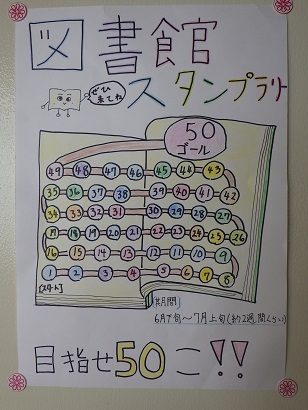 図書館
スタンプラリー
ぜひ
来てね
50
ゴール
49 48 47 46 45 44 43
35 36 37 38 39 40 41 42
34 33 32 31 30 29 28 27
17 18 19 20 21 22 23 24 25 26
16 15 14 13 12 11 10 9
1 2 3 4 5 6 7 8
[スタート]
期間
6月下旬～7月上旬(約2週間くらい)
目指せ50こ!!